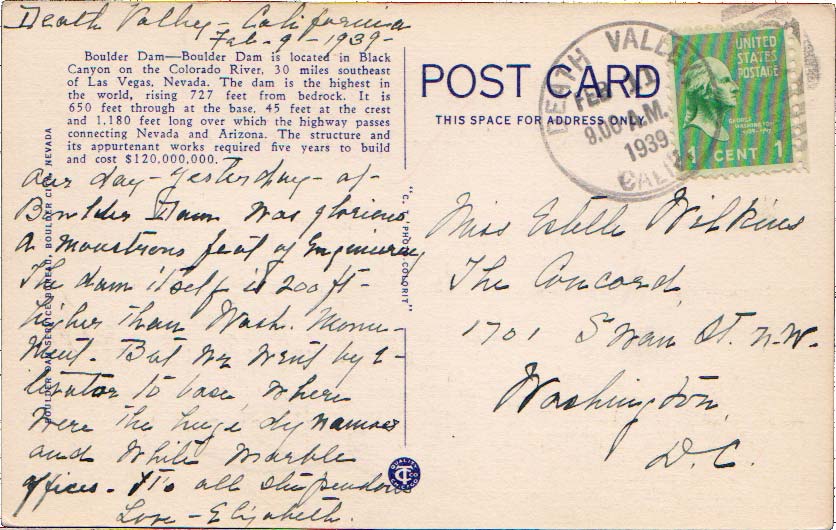 Death Valley - California
Feb - 9 - 1939 -
Boulder Dam—Boulder Dam is located in Black
Canyon on the Colorado River, 30 miles southeast
of Las Vegas, Nevada. The dam is the highest in
the world, rising 727 feet from bedrock. It is
650 feet through at the base, 45 feet at the crest
and 1,180 feet long over which the highway passes
connecting Nevada and Arizona. The structure and
its appurtenant works required five years to build
and cost $120,000,000.
Our day - yesterday - at
Boulder Dam was glorious
a monstrous feat of Engineering
The dam itself is 200 ft -
higher than Wash. Monu-
ment. But we went by e-
levator to base where
were the huge dynamos
and white marble
offices - It's all stupendous
Love - Elizabeth.
BOULDER DAM SERVICE BUREAU, BOULDER CITY, NEVADA
"C. T. PHOTO COLORIT"
QUALITY
CT CO
CHICAGO
POST CARD
THIS SPACE FOR ADDRESS ONLY
DEATH VALLEY
FEB 11
8.00 A.M.
1939
CALIF
UNITED
STATES
POSTAGE
GEORGE
WASHINGTON
1 CENT 1
Miss Estelle Wilkins
The Concord
1701 Swan St. N.W.
Washington
D.C.